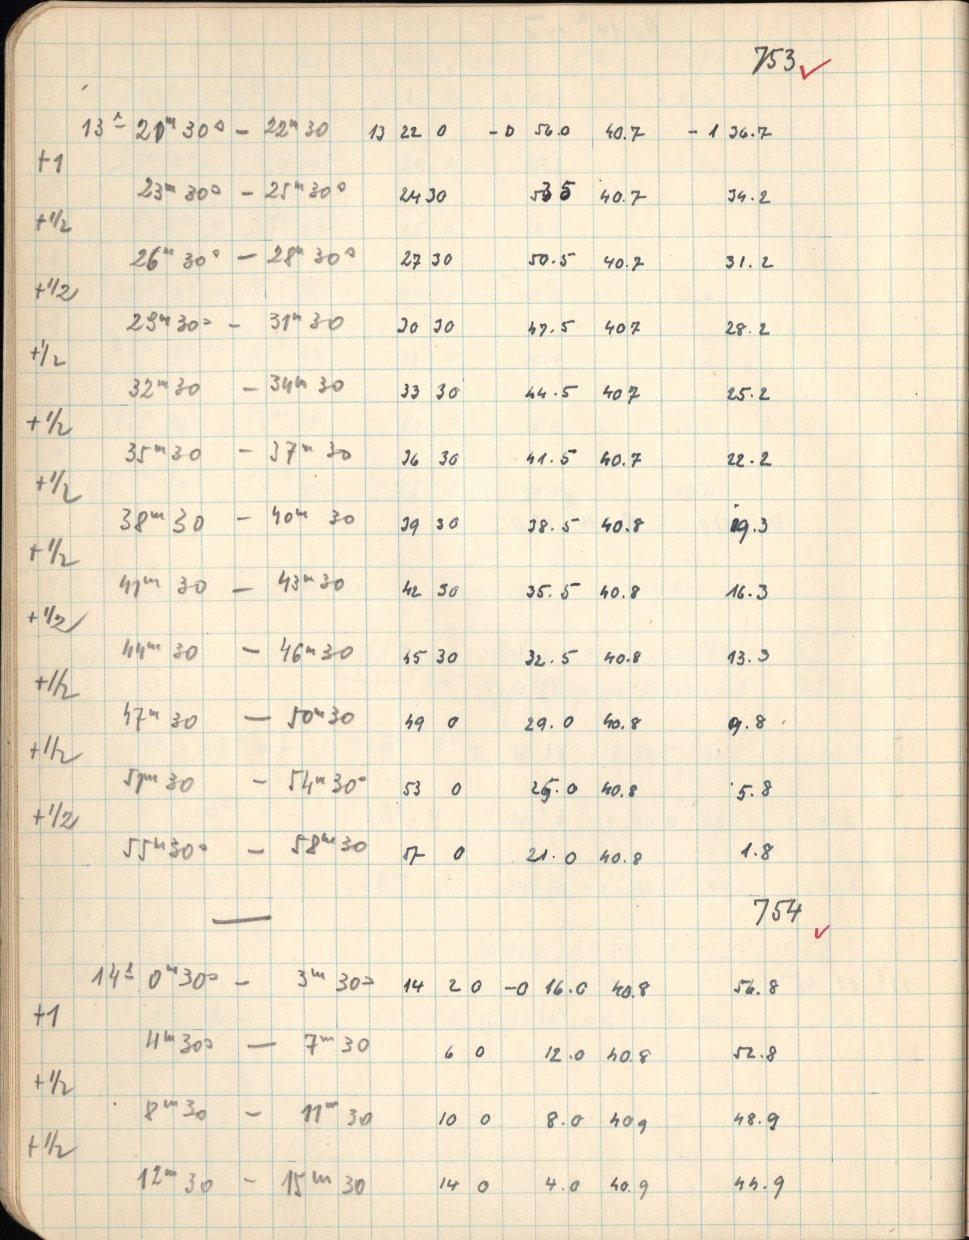 753 ✓
13ʰ 21ᵐ 30ˢ – 22ᵐ 30 13 22 0 - 0 56.0 40.7 - 1 36.7
+1
23ᵐ 30ˢ – 25ᵐ 30ˢ 24 30 53 5 40.7 34.2
+1/2
26ᵐ 30ˢ – 28ᵐ 30ˢ 27 30 50.5 40.7 31.2
+1/2
29ᵐ 30ˢ – 31ᵐ 30 30 30 47.5 407 28.2
+1/2
32ᵐ 30 – 34ᵐ 30 33 30 44.5 407 25.2
+1/2
35ᵐ 30 – 37ᵐ 30 36 30 41.5 40.7 22.2
+1/2
38ᵐ 30 – 40ᵐ 30 39 30 38.5 40.8 19.3
+1/2
41ᵐ 30 – 43ᵐ 30 42 30 35.5 40.8 16.3
+1/2
44ᵐ 30 – 46ᵐ 30 45 30 32.5 40.8 13.3
+1/2
47ᵐ 30 – 50ᵐ 30 49 0 29.0 40.8 9.8
+1/2
51ᵐ 30 – 54ᵐ 30ˢ 53 0 25.0 40.8 5.8
+1/2
55ᵐ 30ˢ – 58ᵐ 30 57 0 21.0 40.8 1.8
—
754 ✓
14ʰ 0ᵐ 30ˢ – 3ᵐ 30ˢ 14 2 0 -0 16.0 40.8 56.8
+1
4ᵐ 30ˢ – 7ᵐ 30 6 0 12.0 40.8 52.8
+1/2
8ᵐ 30 – 11ᵐ 30 10 0 8.0 409 48.9
+1/2
12ᵐ 30 – 15ᵐ 30 14 0 4.0 40.9 44.9